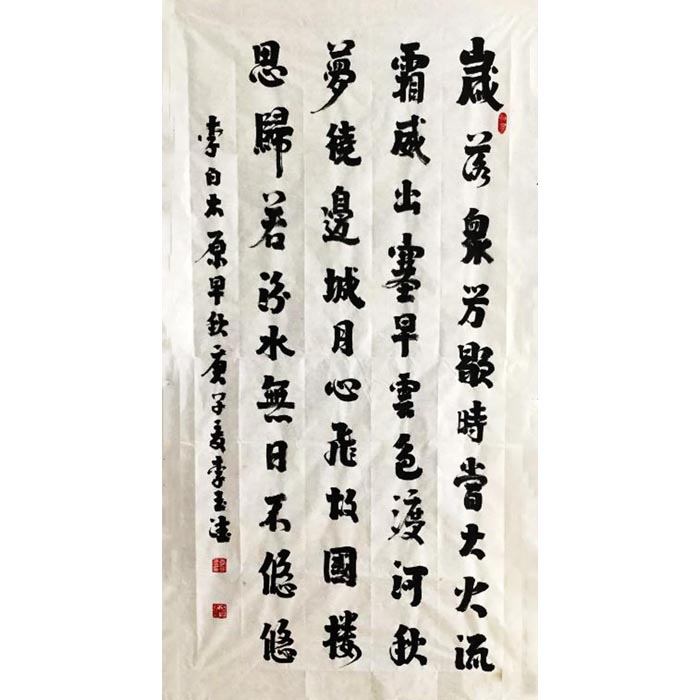 歲落衆芳歇時當大火流
霜威出塞早雲色渡河秋
夢繞邊城月心飛故國樓
思歸若汾水無日不悠悠
李白太原早秋庚子夏李玉